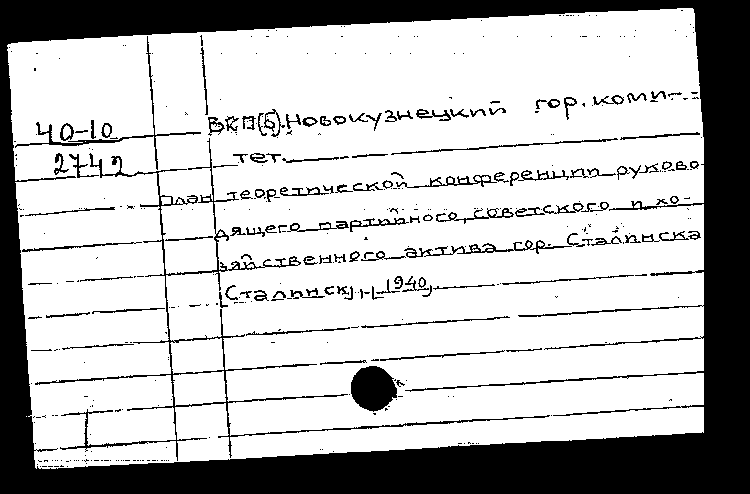 40-10
2742
ВКП(б). Новокузнецкий гор. коми-
тет.
План теоретической конференции руково-
дящего партийного, советского и хо-
зяйственного актива гор. Сталинска
Сталинск, 1940.